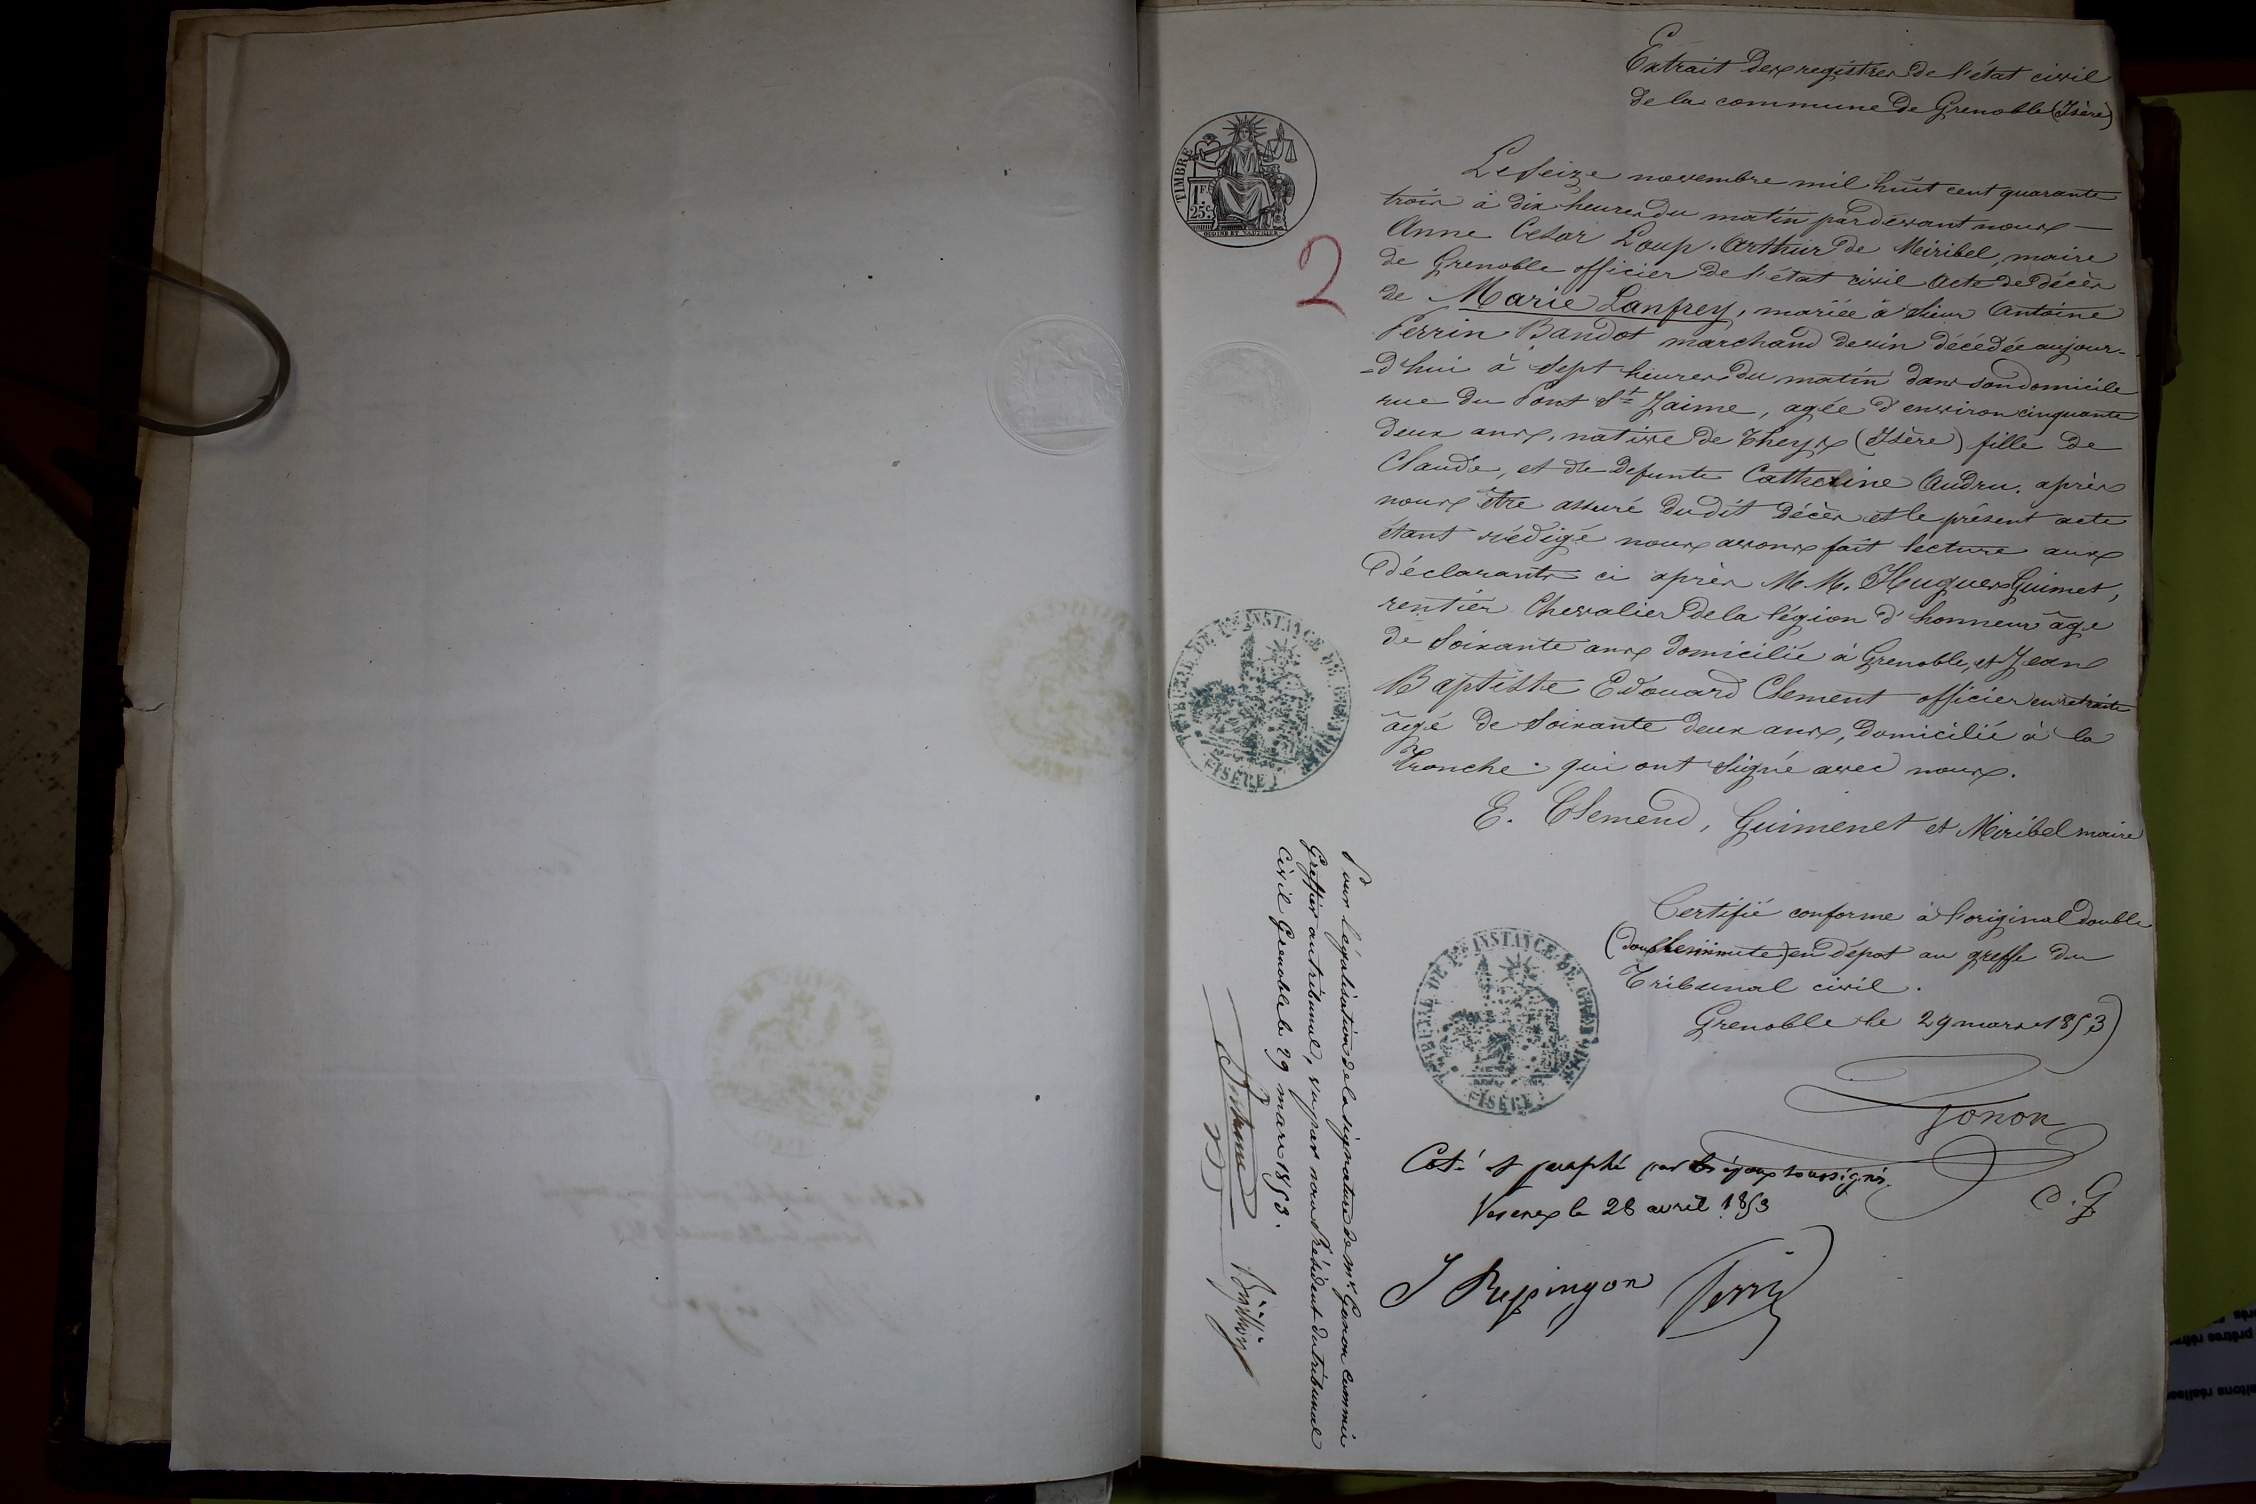 Extrait des registres de l'état civil
de la commune de Grenoble (Isère)
TIMBRE
1 F.
25 c.
2
Le seize novembre mil huit cent quarante
trois à dix heures du matin pardevant nous
Anne Cesar Loup Arthur de Miribel, maire
de Grenoble officier de l'état civil acte de décès
de Marie Lanfrey, mariée à sieur Antoine
Perrin Bandot marchand de vin décédée aujour-
-d'hui à sept heures du matin dans son domicile
rue du Pont St Jaime, agée d'environ cinquante
deux ans, native de Theys (Isère) fille de
Claude, et de defunte Catherine Audru. après
nous être assuré du dit décès et le présent acte
étant rédigé nous avons fait lecture aux
déclarants ci après M.M. Hugues Guimet,
rentier Chevalier de la légion d'honneur âgé
de soixante ans domicilié à Grenoble, et Jean
Baptiste Edouard Clement officier en retraite
âgé de soixante deux ans, domicilié à la
Tronche. qui ont signé avec nous.
E. Clemend, Guimenet et Miribel maire
TRIBUNAL DE 1re INSTANCE DE GRENOBLE
(ISÈRE)
Certifié conforme à l'original double
minute) en dépot au greffe du
Tribunal civil.
Grenoble le 29 mars 1853
Gonon
C. G
TRIBUNAL DE 1re INSTANCE DE GRENOBLE
(ISÈRE)
Coté et paraphé par soussignés
le 28 avril 1853
J Reppingon Perrin
Pour legalisation de la signature de Mr Gonon Commis
Greffier au tribunal, vu par nous Président du tribunal
Civil Grenoble le 29 mars 1853.